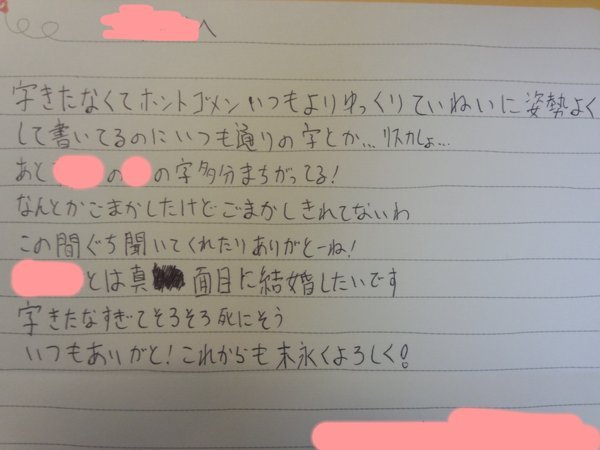 へ
字きたなくてホントゴメンいつもよりゆっくりていねいに姿勢よく
して書いてるのにいつも通りの字とか…リスカしょ…
あと の の字多分まちがってる!
なんとかごまかしたけどごまかしきれてないわ
この間ぐち聞いてくれたりありがとーね!
とは真面目に結婚したいです
字きたなすぎてそろそろ死にそう
いつもありがと!これからも末永くよろしく!